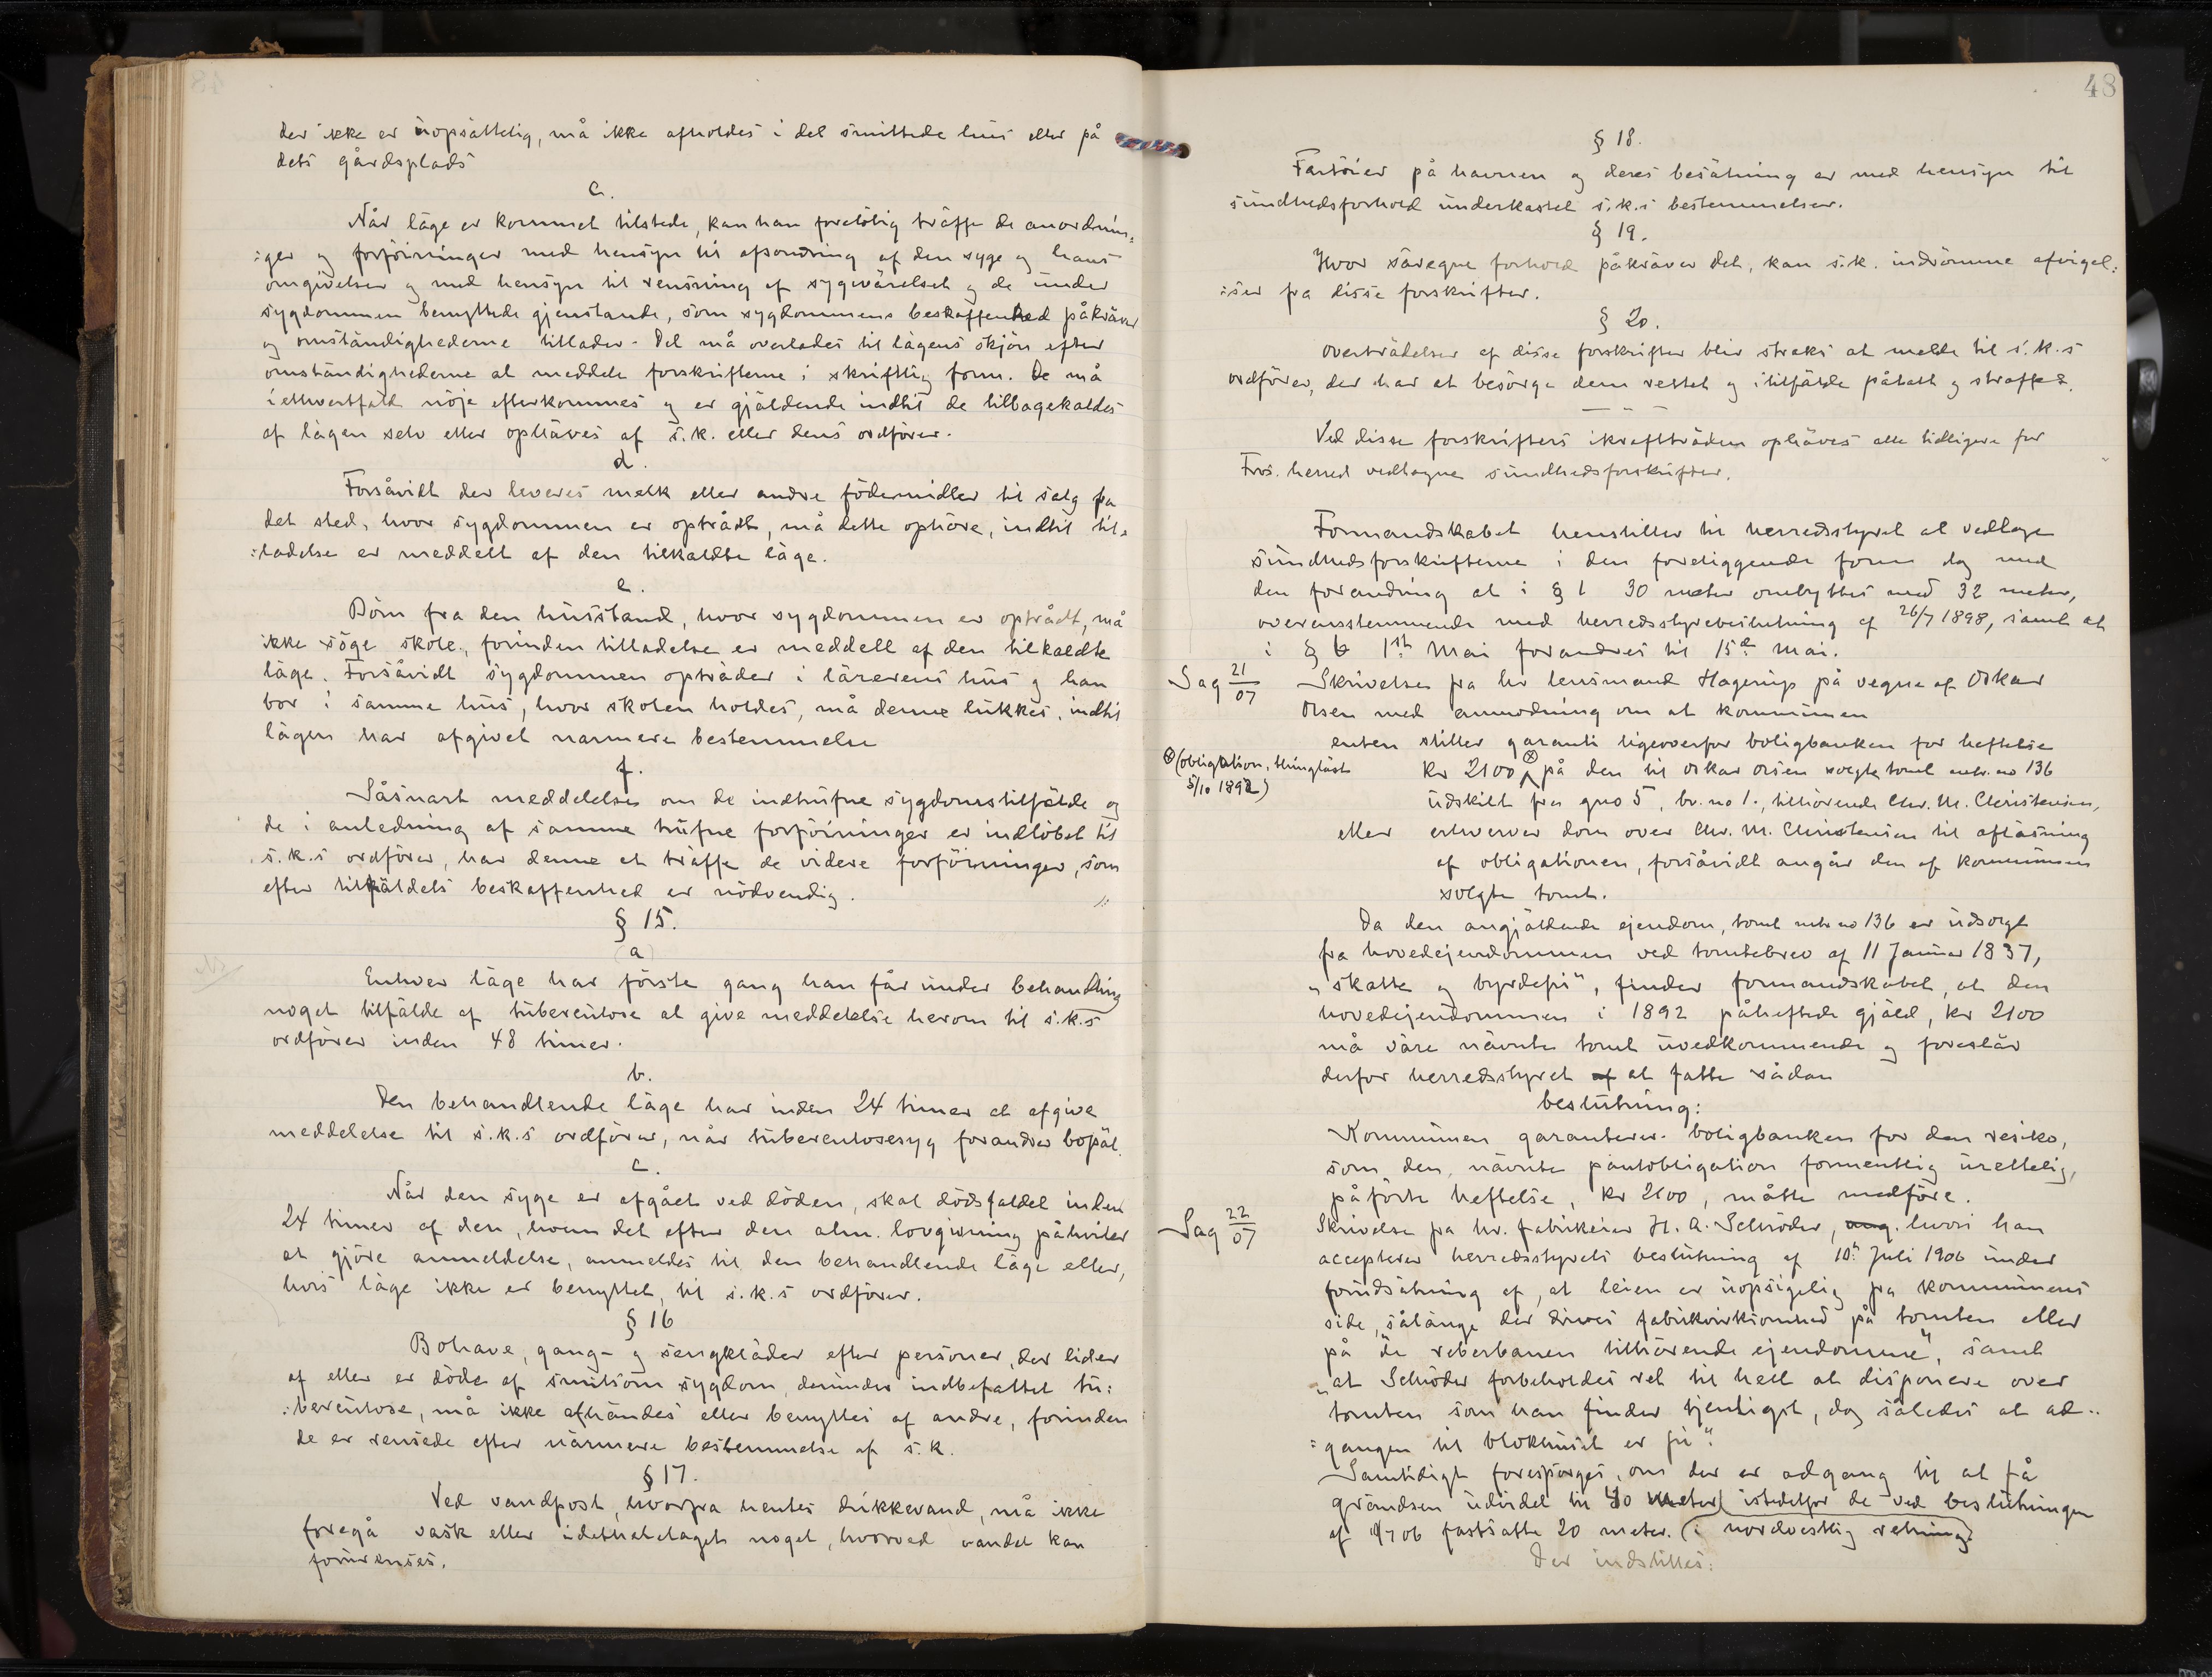 der ikke er uopsättelig, må ikke afholdes i det smittede hus eller på
dets gårdsplads
c.
Når läge er kommet tilstede, kan han foreløbig träffe de anordnin=
=ger og forføininger med hensyn til afsondring af den syge og hans
omgivelser og med hensyn til rensning af sygevärelset og de under
sygdommen benyttede gjenstande, som sygdommens beskaffenhed påkräver
og omständighederne tillader. Det må overlades til lägens skjøn efter
omständighederne at meddele forskrifterne i skriftlig form. De må
i ethvertfald nöje efterkommes og er gjäldende indtil de tilbagekaldes
af lägen selv eller ophäves af s.k. eller dens ordförer.
d.
Forsåvidt der leveres melk eller andre födemidler til salg fra
det sted, hvor sygdommen er optrådt, må dette ophöre, indtil til=
=ladelse er meddelt af den tilkaldte läge.
e.
Börn fra den husstand, hvor sygdommen er optrådt, må
ikke söge skole, forinden tilladelse er meddelt af den tilkaldte
läge. Forsåvidt sygdommen opträder i lärerens hus og han
bor i samme hus, hvor skolen holdes, må denne lukkes, indtil
lägen har afgivet närmere bestemmelse
f.
Såsnart meddelelse om de indtrufne sygdomstilfälde og
de i anledning af samme trufne forföininger er indløbet til
s.k.s ordförer, har denne at träffe de videre forföininger, som
efter tilfäldets beskaffenhed er nödvendig.
§ 15.
(a)
Enhver läge har förste gang han får under behandling
noget tilfälde af tuberculose at give meddelelse herom til s.k.s
ordförer inden 48 timer.
b.
Den behandlende läge har inden 24 timer at afgive
meddelelse til s.k.s ordförer, når tuberculosesyg forandrer bopäl.
c.
Når den syge er afgået ved döden, skal dödsfaldet inden
24 timer af den, hvem det efter den alm. lovgivning påhviler
at gjöre anmeldelse, anmeldes til den behandlende läge eller,
hvis läge ikke er benyttet, til s.k.s ordförer.
§ 16
Bohave, gang- og sengkläder efter personer, der lider
af eller er döde af smitsom sygdom, derunder indbefattet tu=
=berculose, må ikke afhändes eller benyttes af andre, forinden
de er rensede efter närmere bestemmelse af s.k.
§ 17.
Ved vandpost, hvorfra hentes drikkevand, må ikke
foregå vask eller idethele taget noget, hvorved vandet kan
forurenses.
48
§ 18.
Fartöier på havnen og deres besätning er med hensyn til
sundhedsforhold underkastet s.k.s bestemmelser.
§ 19.
Hvor säregne forhold påkräver det, kan s.k. indrömme afvigel=
=ser fra disse forskrifter.
§ 20.
Overträdelser af disse forskrifter blir straks at melde til s.k.s
ordförer, der har at besörge dem rettet og i tilfälde påtalt og straffet.
Ved disse forskrifters ikraftträden ophäves alle tidligere for
Tros. herred vedtagne sundhedsforskrifter.
Formandskabet henstiller til herredsstyret at vedtage
sundhedsforskrifterne i den foreliggende form dog med
den forandring at i § 1 30 meter ombyttes med 32 meter,
overensstemmende med herredsstyrebeslutning af 26/7 1898, samt at
i § 6 1ste Mai forandres til 15de Mai.
Sag 21/07 Skrivelse fra hr lensmand Hagerup på vegne af Oskar
Olsen med anmodning om at kommunen
enten stiller garanti ligeoverfor boligbanken for heftelse
kr 2100 ⊗ på den til Oskar Olsen solgte tomt mtr. no 136
⊗ (obligation, thingläst
5/10 1892)
udskilt fra gno 5, br. no 1, tilhörende Chr. M. Christensen,
eller erhverver dom over Chr. M. Christensen til afläsning
af obligationen, forsåvidt angår den af kommunen
solgte tomt.
Da den angjäldende ejendom, tomt mtr no 136 er udsolgt
fra hovedejendommen ved tomtebrev af 11 Januar 1837,
"skatte og byrdefri", finder formandskabet, at den
hovedejendommen i 1892 påheftede gjäld, kr 2100
må väre nävnte tomt uvedkommende og foreslår
derfor herredsstyret af at fatte sådan
beslutning:
Kommunen garanterer boligbanken for den resiko,
som den, nävnte pantobligation formentlig urettelig,
påförte heftelse, kr 2100, måtte medföre.
Sag 22/07 Skrivelse fra hr. fabrikeier H. A. Schröder, ang. hvori han
accepterer herredsstyrets beslutning af 10de Juli 1906 under
forudsätning af, at leien er uopsigelig fra kommunens
side, sålänge der drives fabrikvirksomhed på tomten eller
på "de reberbanen tilhörende ejendomme", samt
"at Schröder forbeholdes ret til helt at disponere over
tomten som han finder tjenligst, dog således at ad=
=gangen til blokhuset er fri".
Samtidigt forespörges, om der er adgang til at få
grändsen udvidet til 40 meter istedetfor de ved beslutningen
af 10/7 06 fastsatte 20 meter. (i nordvestlig retning)
Der indstilles: